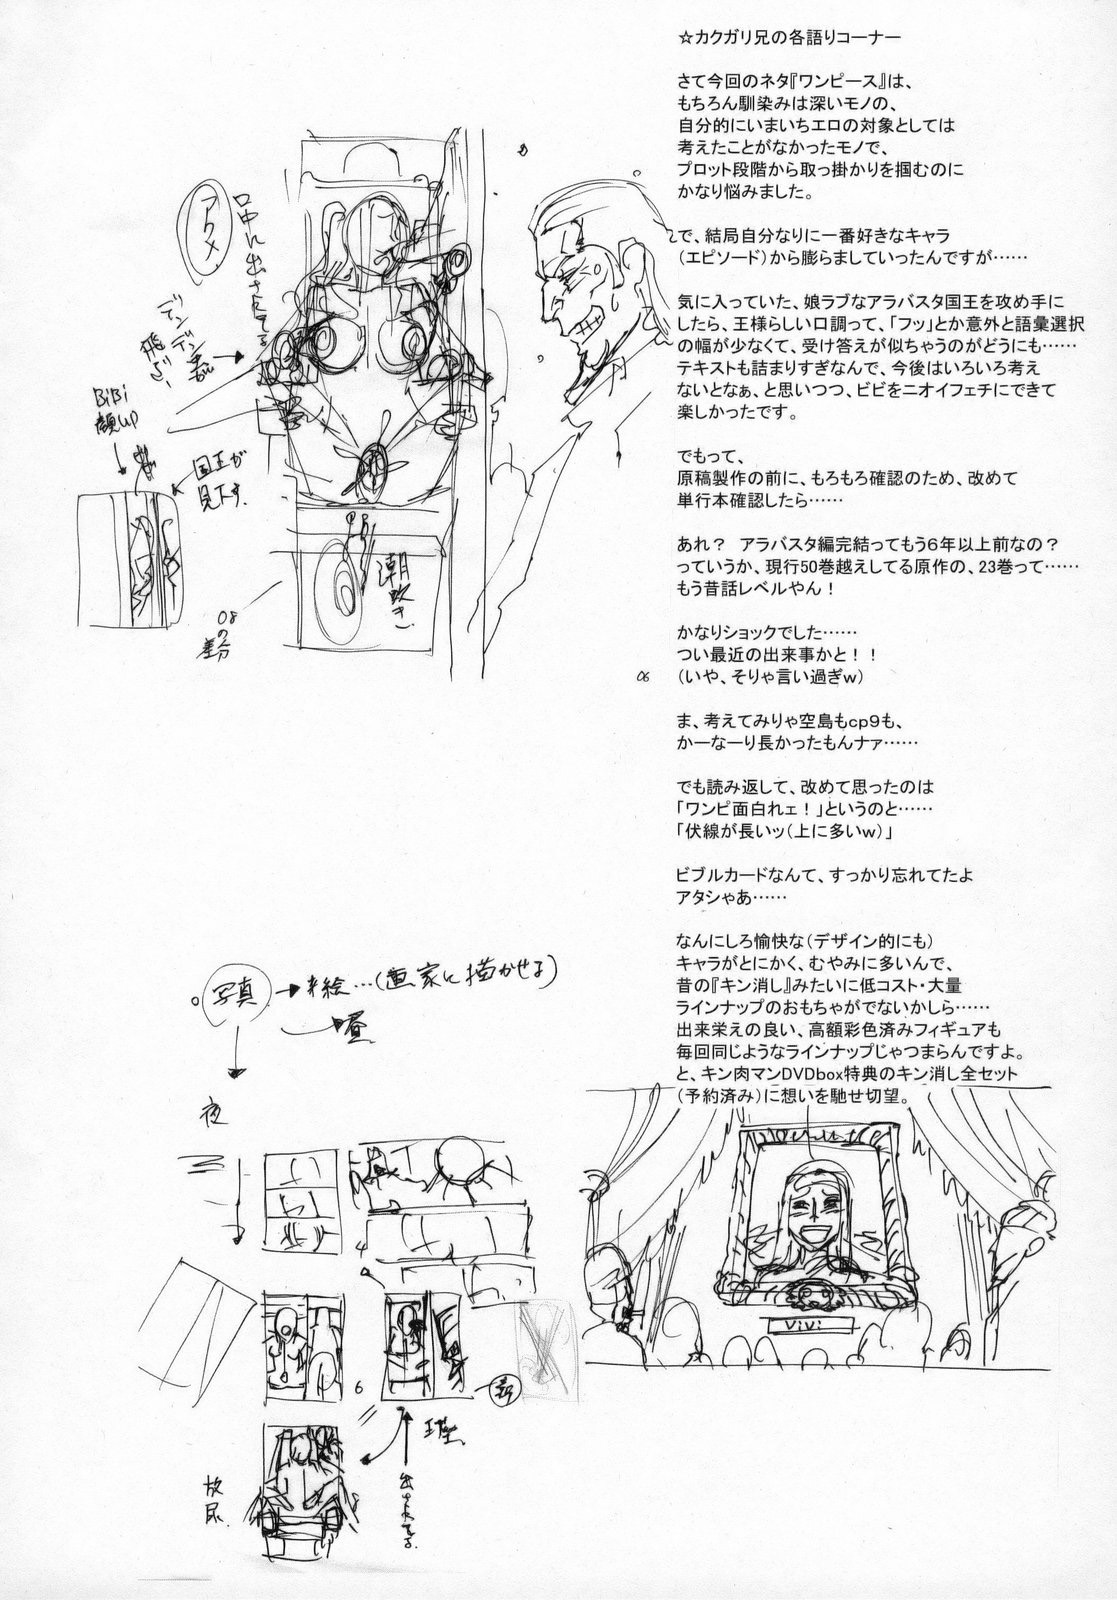 ☆カクガリ兄の各語りコーナー
さて今回のネタ『ワンピース』は、
もちろん馴染みは深いモノの、
自分的にいまいちエロの対象としては
考えたことがなかったモノで、
プロット段階から取っ掛かりを掴むのに
かなり悩みました。
で、結局自分なりに一番好きなキャラ
（エピソード）から膨らましていったんですが……
気に入っていた、娘ラブなアラバスタ国王を攻め手に
したら、王様らしい口調って、「フッ」とか意外と語彙選択
の幅が少なくて、受け答えが似ちゃうのがどうにも……
テキストも詰まりすぎなんで、今後はいろいろ考え
ないとなぁ、と思いつつ、ビビをニオイフェチにできて
楽しかったです。
でもって、
原稿製作の前に、もろもろ確認のため、改めて
単行本確認したら……
あれ？　アラバスタ編完結ってもう６年以上前なの？
っていうか、現行50巻越えしてる原作の、23巻って……
もう昔話レベルやん！
かなりショックでした……
つい最近の出来事かと！！
（いや、そりゃ言い過ぎｗ）
ま、考えてみりゃ空島もcp９も、
かーなーり長かったもんナァ……
でも読み返して、改めて思ったのは
「ワンピ面白れェ！」というのと……
「伏線が長いッ（上に多いｗ）」
ビブルカードなんて、すっかり忘れてたよ
アタシゃあ……
なんにしろ愉快な（デザイン的にも）
キャラがとにかく、むやみに多いんで、
昔の『キン消し』みたいに低コスト・大量
ラインナップのおもちゃがでないかしら……
出来栄えの良い、高額彩色済みフィギュアも
毎回同じようなラインナップじゃつまらんですよ。
と、キン肉マンDVDbox特典のキン消し全セット
（予約済み）に想いを馳せ切望。
アクメ
BiBi
顔up
国王が
見下す.
潮吹き
08
の
差分
06
写真
(画家に描かせる)
夜
4
6
放尿
ViVi